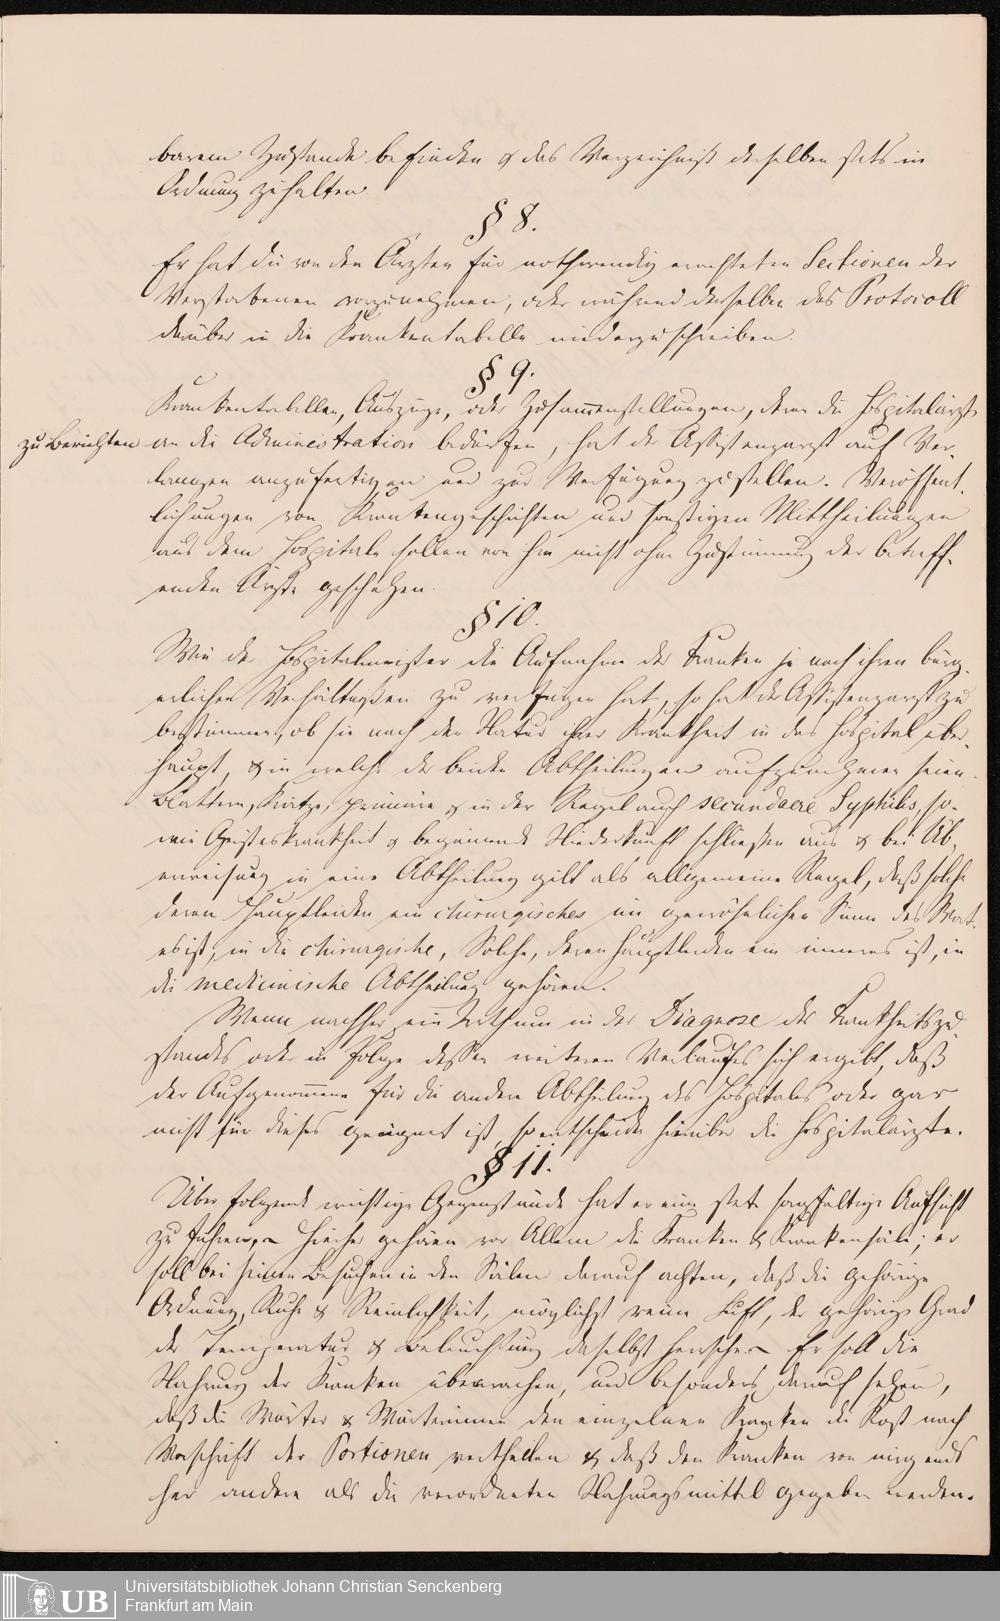 barem Zustande befinden & das Verzeichniß derselben stets in
Ordnung zu halten.
§ 8.
Er hat die von den Ärzten für nothwendig erachteten Sectionen der
Verstorbenen vorzunehmen, oder während derselben das Protocoll
darüber in die Krankentabelle niederzuschreiben.
§ 9.
Krankentabellen, Auszüge, oder Zusam̅enstellungen, deren die Hospitalärzte
zu Berichten an die Administration bedürfen, hat der Assistenzarzt auf Ver-
langen anzufertigen und zur Verfügung zu stellen. Veröffent-
lichungen von Krankengeschichten und sonstigen Mittheilungen
aus dem Hospitale sollen von ihm nicht ohne Zustimmung der betreff-
enden Ärzte geschehen.
§ 10.
Wie der Hospitalmeister die Aufnahme der Kranken je nach ihren bürg-
erlichen Verhältnißen zu verfügen hat, so hat der Assistenzarzt zu
bestimmen, ob sie nach der Natur ihrer Krankheit in das Hospital über-
haupt, & in welche der beiden Abtheilungen aufzunehmen seien.
Blattern, Krätze, primäre & in der Regel auch secundaere Syphilis, so-
wie Geisteskrankheit & beginnende Niederkunft schließen aus & bei Üb-
erweisung in eine Abtheilung gilt als allgemeine Regel, daß solche
deren Hauptleiden ein chirurgisches im gewöhnlichen Sinne des Wort-
es ist, in die chirurgische, Solche, deren Hauptleiden ein inneres ist, in
die medicinische Abtheilung gehören.
Wenn nachher ein Irrthum in der Diagnose des Krankheitszu-
standes oder in Folge dessen weiteren Verlaufes sich ergibt, daß
der Aufgenom̅ene für die andere Abtheilung des Hospitales oder gar
nicht für dieses geeignet ist, so entscheiden hierüber die Hospitalärzte.
§ 11.
Über folgende wichtige Gegenstände hat er eine stete sorgfältige Aufsicht
zu führen. – Hierher gehören vor Allem die Kranken & Krankensäle; er
soll bei seinen Besuchen in den Sälen darauf achten, daß die gehörige
Ordnung, Ruhe & Reinlichkeit, möglichst reine Luft, der gehörige Grad
der Temperatur & Beleuchtung daselbst herrsche. – Er soll die
Nahrung der Kranken überwachen, und besonders darauf sehen,
daß die Wärter & Wärterinnen den einzelnen Kranken die Kost nach
Vorschrift der Portionen vertheilen & daß den Kranken von nirgends
her andere als die verordneten Nahrungsmittel gegeben werden.
UB
Universitätsbibliothek Johann Christian Senckenberg
Frankfurt am Main